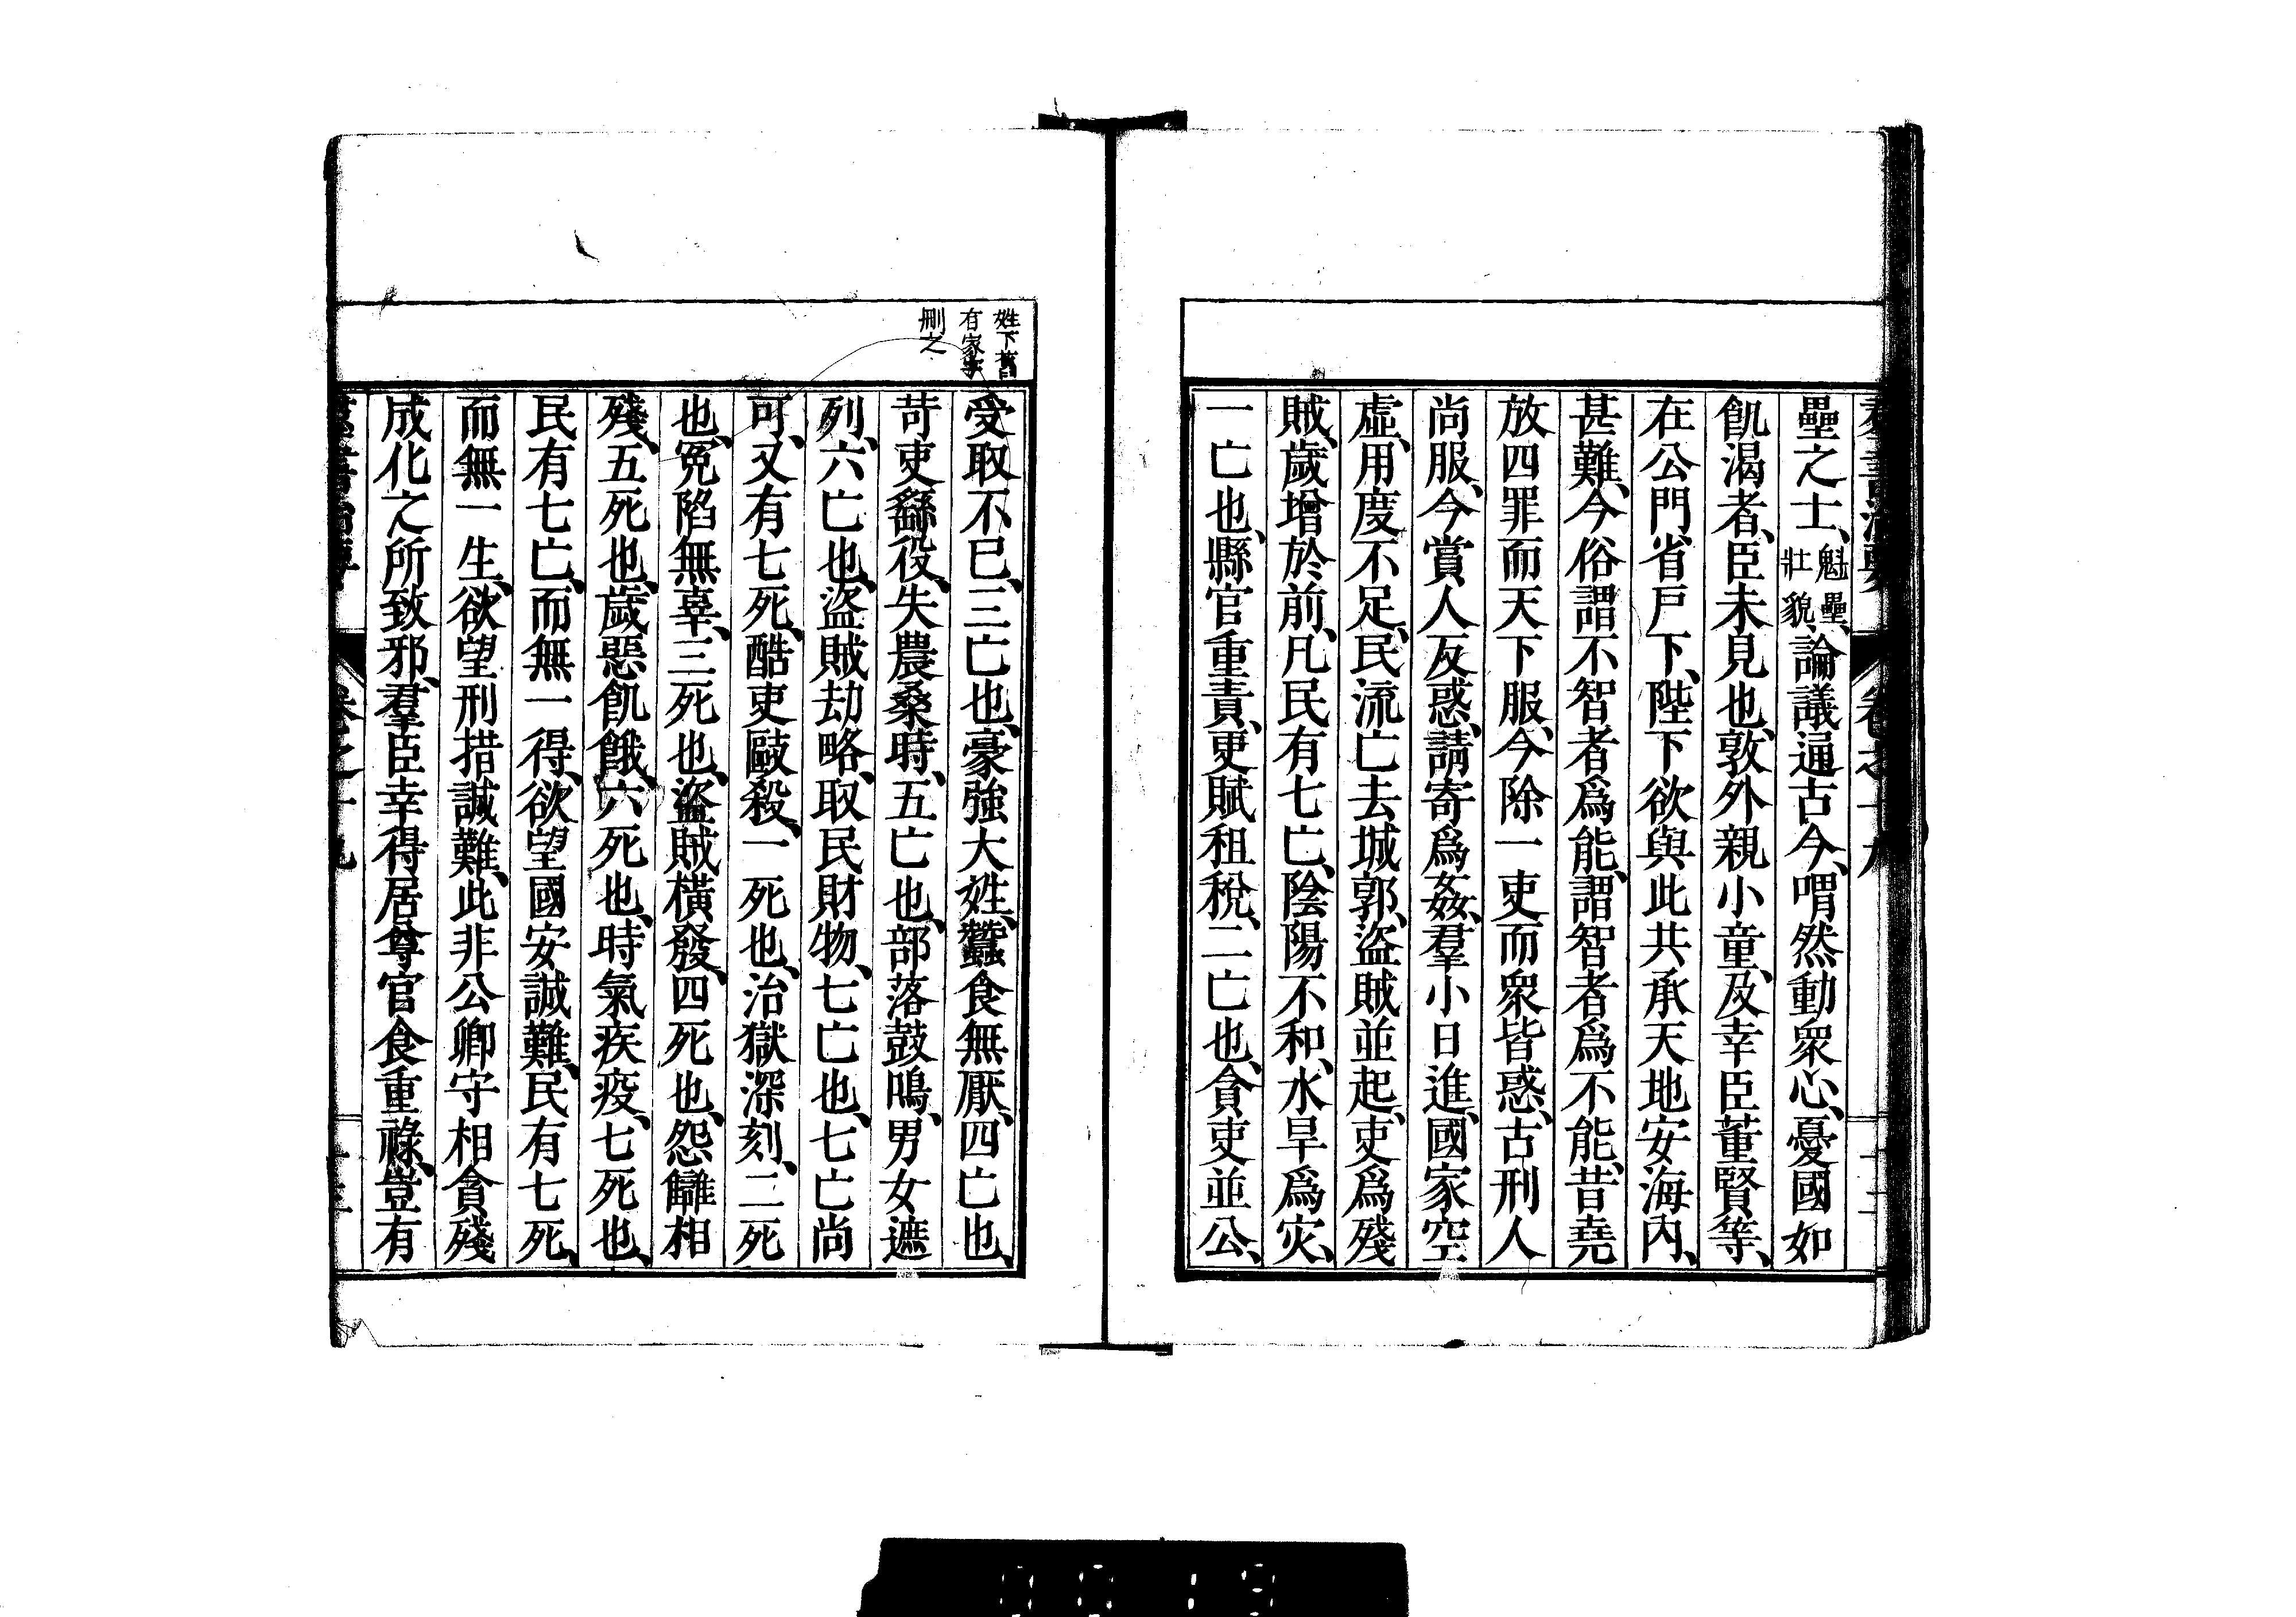 羣書治要 卷之十九
壘之士、魁壘、壯貌、論議通古今、喟然動衆心、憂國如
飢渴者、臣未見也、敦外親小童、及幸臣董賢等、
在公門、省戶下、陛下欲與此共承天地安海內、
甚難、今俗謂不智者爲能、謂智者爲不能、昔堯
放四罪而天下服、今除一吏而衆皆惑、古刑人
尚服、今賞人反惑、請寄爲姦、羣小日進、國家空
虛、用度不足、民流亡去城郭、盜賊並起、吏爲殘
賊、歲增於前、凡民有七亡、陰陽不和、水旱爲灾、
一亡也、縣官重責、更賦租稅、二亡也、貪吏並公、
姓下舊
有家字
刪之
受取不已、三亡也、豪強大姓、蠶食無厭、四亡也、
苛吏繇役、失農桑時、五亡也、部落鼓鳴、男女遮
列、六亡也、盜賊劫略、取民財物、七亡也、七亡尚
可、又有七死、酷吏毆殺、一死也、治獄深刻、二死
也、冤陷無辜、三死也、盜賊橫發、四死也、怨讎相
殘、五死也、歲惡飢餓、六死也、時氣疾疫、七死也、
民有七亡、而無一得、欲望國安誠難、民有七死、
而無一生、欲望刑措誠難、此非公卿守相貪殘
成化之所致邪、羣臣幸得居尊官食重祿、豈有